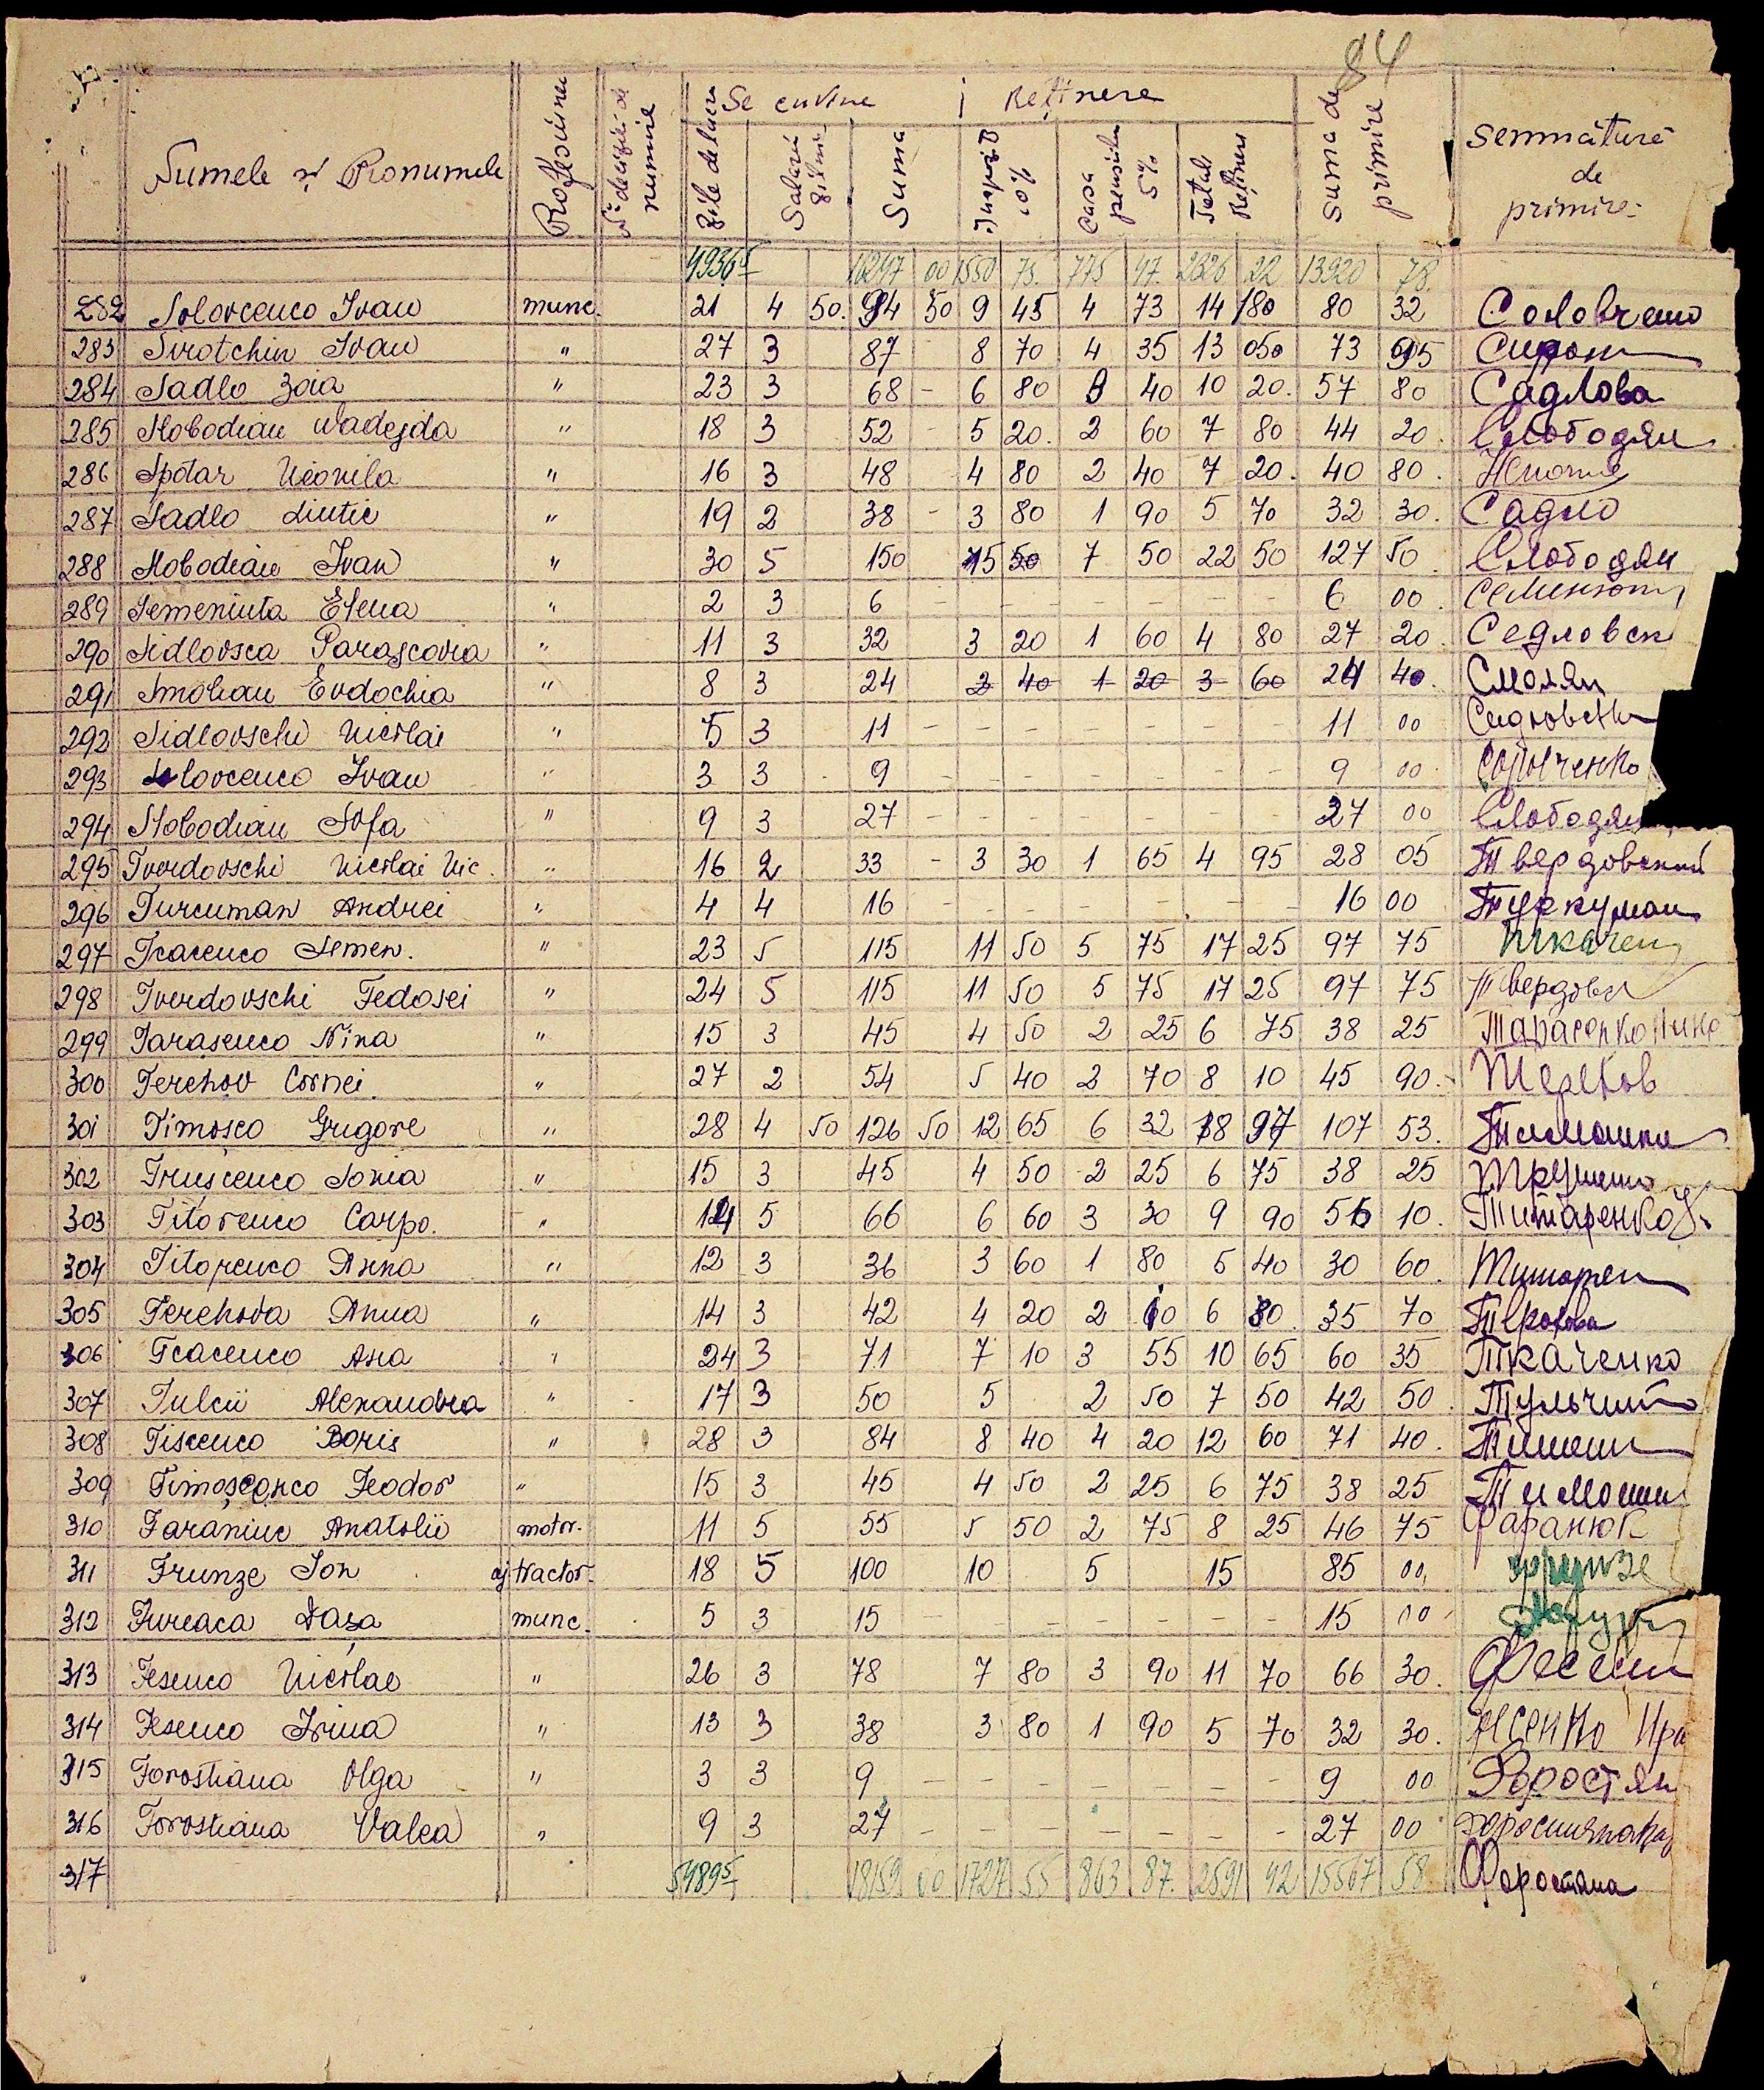 94
Numele și Pronumele Profesiunea № deciziei de numire Se cuvine Reținere Suma de primire Semnătura de primire
Zile de lucru Salariu zilnic Suma Impozit 10% Casa pensiilor 5% Total Rețineri
4936 5 16247 00 1550 75 775 47 2326 22 13920 78
282 Solovcenco Ivan munc. 21 4 50 94 50 9 45 4 73 14 180 80 32 Соловченко
283 Sirotchin Ivan " 27 3 87 8 70 4 35 13 050 73 95 Сирот
284 Sadlo Zoia " 23 3 68 - 6 80 3 40 10 20 57 80 Садлова
285 Slobodian Nadejda " 18 3 52 - 5 20 2 60 7 80 44 20 Слободян
286 Spotar Neonila " 16 3 48 4 80 2 40 7 20 40 80
287 Sadlo Liutic " 19 2 38 - 3 80 1 90 5 70 32 30 Садло
288 Slobodian Ivan " 30 5 150 15 50 7 50 22 50 127 50 Слободян
289 Semeniuta Elena " 2 3 6 - - - - - - 6 00 Семенют
290 Sidlovsca Parascovia " 11 3 32 3 20 1 60 4 80 27 20 Седловск
291 Smolian Evdochia " 8 3 24 2 40 1 20 3 60 24 40 Смолян
292 Sidlovschi Nicolai " 5 3 11 - - - - - - - 11 00 Сидловски
293 Solovcenco Ivan " 3 3 9 - - - - - - - 9 00 Соловченко
294 Slobodian Sofa " 9 3 27 - - - - - - - 27 00 Слободян
295 Tverdovschi Nicolai Nic. " 16 2 33 - 3 30 1 65 4 95 28 05 Твердовский
296 Turcuman Andrei " 4 4 16 - - - - - - - 16 00 Туркуман
297 Tcacenco Semen. " 23 5 115 11 50 5 75 17 25 97 75 Ткачен
298 Tverdovschi Fedosei " 24 5 115 11 50 5 75 17 25 97 75 Твердовс
299 Tarasenco Nina " 15 3 45 4 50 2 25 6 75 38 25 Тарасенко Нина
300 Terehov Cornei. " 27 2 54 5 40 2 70 8 10 45 90 Терехов
301 Timosco Grigore " 28 4 50 126 50 12 65 6 32 18 97 107 53 Тимошки
302 Trușcenco Sonia " 15 3 45 4 50 2 25 6 75 38 25 Трушенко
303 Titorenco Carpo. " 14 5 66 6 60 3 30 9 90 56 10 Титаренко К
304 Titorenco Anna " 12 3 36 3 60 1 80 5 40 30 60 Титорен
305 Terehova Anna " 14 3 42 4 20 2 10 6 30 35 70 Терехова
306 Tcacenco Asea " 24 3 71 7 10 3 55 10 65 60 35 Ткаченко
307 Tulcii Alexandra " 17 3 50 5 2 50 7 50 42 50 Тульчий
308 Tiscenco Boris " 28 3 84 8 40 4 20 12 60 71 40 Тишен
309 Timoșenco Feodor " 15 3 45 4 50 2 25 6 75 38 25 Тимошин
310 Faraniuc Anatolii motor. 11 5 55 5 50 2 75 8 25 46 75 Фаранюк
311 Frunze Ion aj tractor. 18 5 100 10 5 15 85 00 Фрунзе
312 Fureaca Dașa munc. 5 3 15 - - - - - - - 15 00
313 Fesenco Nicolae " 26 3 78 7 80 3 90 11 70 66 30 Фесен
314 Fesenco Irina " 13 3 38 3 80 1 90 5 70 32 30 Фесенко Ира
315 Forostiana Olga " 3 3 9 - - - - - - - 9 00 Форостян
316 Forostiana Valea " 9 3 27 - - - - - - - 27 00
317 5489 5 18159 00 1727 55 863 87 2591 42 15567 58 Форостяна